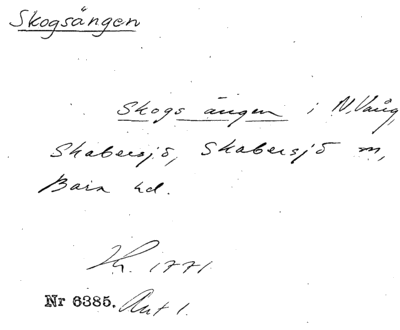 Skogsängen
Skogs ängen i N. Vång,
Skabersjö, Skabersjö sn,
Bara hd.
Hr. 1771.
Nr 6385. Akt 1.